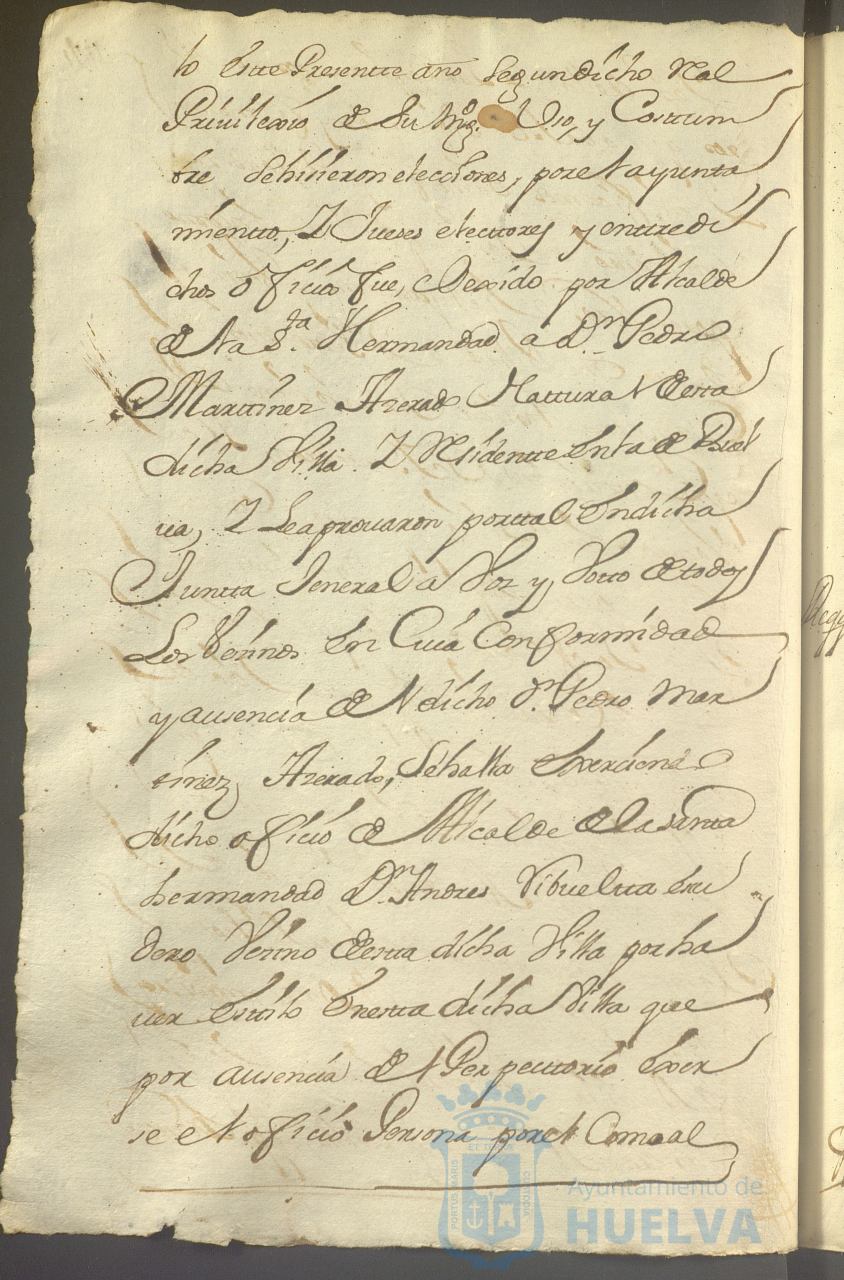 to Estte Presentte año Segun dicho Real
Privilexio de Su Mgd. Uso, y Costtum
bre Sehisieron elecciones, por el ayunta
mientto, Y Jueses electtores y enttre di
chos oficios fue, elexido por Alcalde
de la Sta. Hermandad a Dn. Pedro
Marttinez Azerado Nattural de esta
dicha Villa. Y Residentte En la de Buel
va, Y Le aprovaron por ttal En dicha
Juntta Jeneral a Voz y Votto de todos
Los Vesinos En Cuia Conformidad
y ausencia del dicho Dn. Pedro Mar
tinez Azerado, Se halla Exerciendo
dicho oficio de Alcalde de la Santa
hermandad Dn. Andres Vibueltta Escu
dero Vesino de esta dicha Villa por ha
ver Estilo En esta dicha Villa que
por ausencia del Perpettorio Exer
se el oficio Persona por el Como al
Ayuntamiento de
HUELVA
PORTUS MARIS
ET TERRAE
CUSTODIA